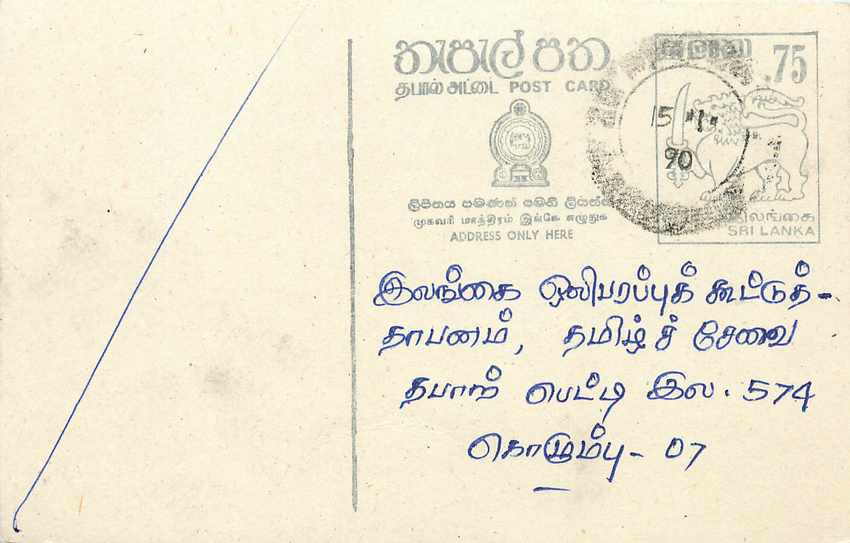 තැපැල් පත
.75
தபால் அட்டை POST CARD
15
90
ලිපිනය පමණක් පමණි ලියන්න
முகவரி மாத்திரம் இங்கே எழுதுக
ADDRESS ONLY HERE
இலங்கை
SRI LANKA
இலங்கை ஒலிபரப்புக் கூட்டுத்-
தாபனம், தமிழ்ச் சேவை
தபாற் பெட்டி இல. 574
கொழும்பு - 07